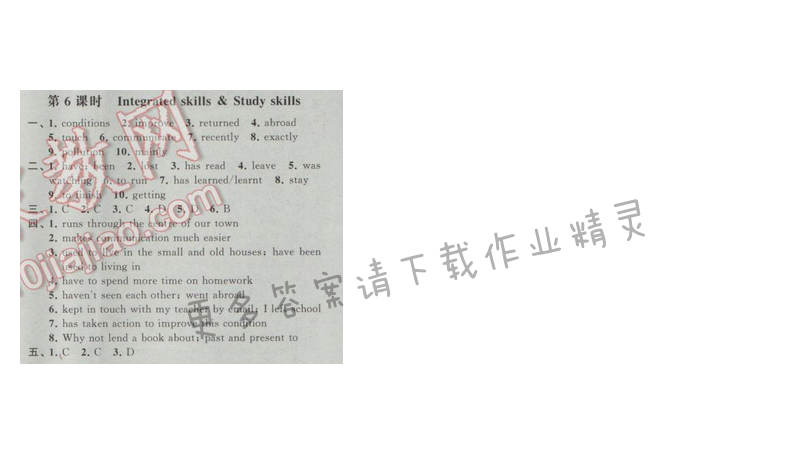 第 6 课时 Integrated skills & Study skills
一、1. conditions 2. improve 3. returned 4. abroad
5. touch 6. communicate 7. recently 8. exactly
9. pollution 10. mainly
二、1. have; been 2. lost 3. has read 4. leave 5. was
watching 6. to run 7. has learned/learnt 8. stay
9. to finish 10. getting
三、1. C 2. C 3. C 4. D 5. D 6. B
四、1. runs through the centre of our town
2. makes communication much easier
3. used to live in the small and old houses; have been
used to living in
4. have to spend more time on homework
5. haven't seen each other; went abroad
6. kept in touch with my teacher by email; I left school
7. has taken action to improve this condition
8. Why not lend a book about; past and present to
五、1. C 2. C 3. D
更多答案请下载作业精灵